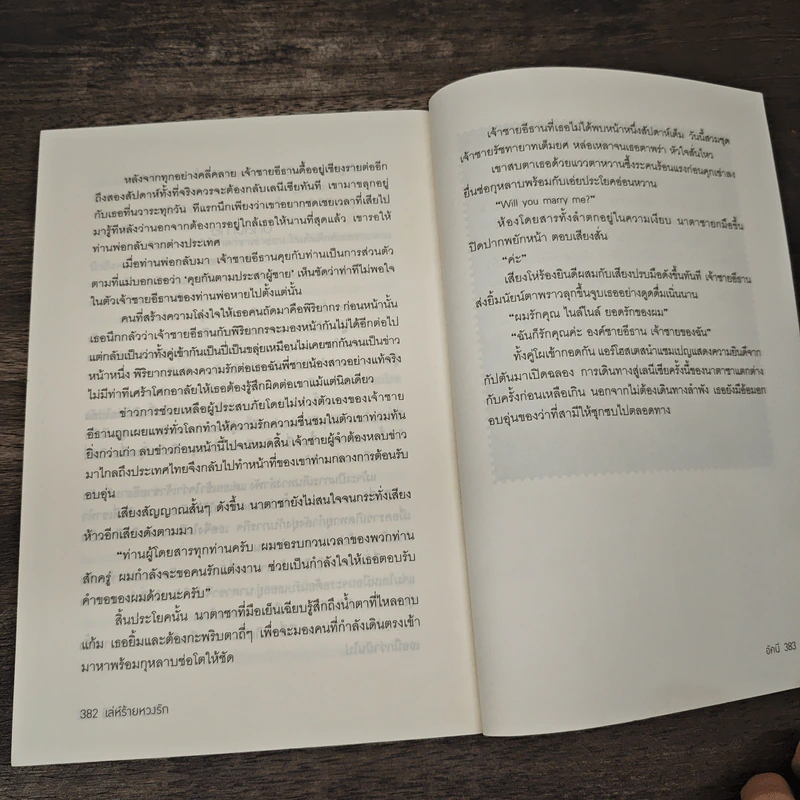 หลังจากทุกอย่างคลี่คลาย เจ้าชายอีธานดื้ออยู่เชียงรายต่ออีก
ถึงสองสัปดาห์ทั้งที่จริงควรจะต้องกลับเลนีเซียทันที เขามาขลุกอยู่
กับเธอที่นวาระทุกวัน ทีแรกนึกเพียงว่าเขาอยากชดเชยเวลาที่เสียไป
มารู้ทีหลังว่านอกจากต้องการอยู่ใกล้เธอให้นานที่สุดแล้ว เขารอให้
ท่านพ่อกลับจากต่างประเทศ
เมื่อท่านพ่อกลับมา เจ้าชายอีธานคุยกับท่านเป็นการส่วนตัว
ตามที่แม่บอกเธอว่า ‘คุยกันตามประสาผู้ชาย’ เห็นชัดว่าท่าทีไม่พอใจ
ในตัวเจ้าชายอีธานของท่านพ่อหายไปตั้งแต่นั้น
คนที่สร้างความโล่งใจให้เธอคนถัดมาคือพิริยากร ก่อนหน้านั้น
เธอนึกกลัวว่าเจ้าชายอีธานกับพิริยากรจะมองหน้ากันไม่ได้อีกต่อไป
แต่กลับเป็นว่าทั้งคู่เข้ากันเป็นปี่เป็นขลุ่ยเหมือนไม่เคยชกกันจนเป็นข่าว
หน้าหนึ่ง พิริยากรแสดงความรักต่อเธอฉันพี่ชายน้องสาวอย่างแท้จริง
ไม่มีท่าทีเศร้าโศกอาลัยให้เธอต้องรู้สึกผิดต่อเขาแม้แต่นิดเดียว
ข่าวการช่วยเหลือผู้ประสบภัยโดยไม่ห่วงตัวเองของเจ้าชาย
อีธานถูกเผยแพร่ทั่วโลกทำให้ความรักความชื่นชมในตัวเขาท่วมท้น
ยิ่งกว่าเก่า ลบข่าวก่อนหน้านี้ไปจนหมดสิ้น เจ้าชายผู้จำต้องหลบข่าว
มาไกลถึงประเทศไทยจึงกลับไปทำหน้าที่ของเขาท่ามกลางการต้อนรับ
อบอุ่น
เสียงสัญญาณสั้นๆ ดังขึ้น นาตาชายังไม่สนใจจนกระทั่งเสียง
ห้าวอีกเสียงดังตามมา
“ท่านผู้โดยสารทุกท่านครับ ผมขอรบกวนเวลาของพวกท่าน
สักครู่ ผมกำลังจะขอคนรักแต่งงาน ช่วยเป็นกำลังใจให้เธอตอบรับ
คำขอของผมด้วยนะครับ”
สิ้นประโยคนั้น นาตาชาที่มือเย็นเฉียบรู้สึกถึงน้ำตาที่ไหลอาบ
แก้ม เธอยิ้มและต้องกะพริบตาถี่ๆ เพื่อจะมองคนที่กำลังเดินตรงเข้า
มาหาพร้อมกุหลาบช่อโตให้ชัด
382 เล่ห์ร้ายหวงรัก
เจ้าชายอีธานที่เธอไม่ได้พบหน้าหนึ่งสัปดาห์เต็ม วันนี้สวมชุด
เจ้าชายรัชทายาทเต็มยศ หล่อเหลาจนเธอตาพร่า หัวใจสั่นไหว
เขาสบตาเธอด้วยแววตาหวานซึ้งระคนร้อนแรงก่อนคุกเข่าลง
ยื่นช่อกุหลาบพร้อมกับเอ่ยประโยคอ่อนหวาน
“Will you marry me?”
ห้องโดยสารทั้งลำตกอยู่ในความเงียบ นาตาชายกมือขึ้น
ปิดปากพยักหน้า ตอบเสียงสั่น
“ค่ะ”
เสียงโห่ร้องยินดีผสมกับเสียงปรบมือดังขึ้นทันที เจ้าชายอีธาน
ส่งยิ้มนัยน์ตาพราวลุกขึ้นจูบเธออย่างดูดดื่มเนิ่นนาน
“ผมรักคุณ ไนส์ไนส์ ยอดรักของผม”
“ฉันก็รักคุณค่ะ องค์ชายอีธาน เจ้าชายของฉัน”
ทั้งคู่โผเข้ากอดกัน แอร์โฮสเตสนำแชมเปญแสดงความยินดีจาก
กัปตันมาเปิดฉลอง การเดินทางสู่เลนีเซียครั้งนี้ของนาตาชาแตกต่าง
กับครั้งก่อนเหลือเกิน นอกจากไม่ต้องเดินทางลำพัง เธอยังมีอ้อมอก
อบอุ่นของว่าที่สามีให้ซุกซบไปตลอดทาง
อัคนี 383